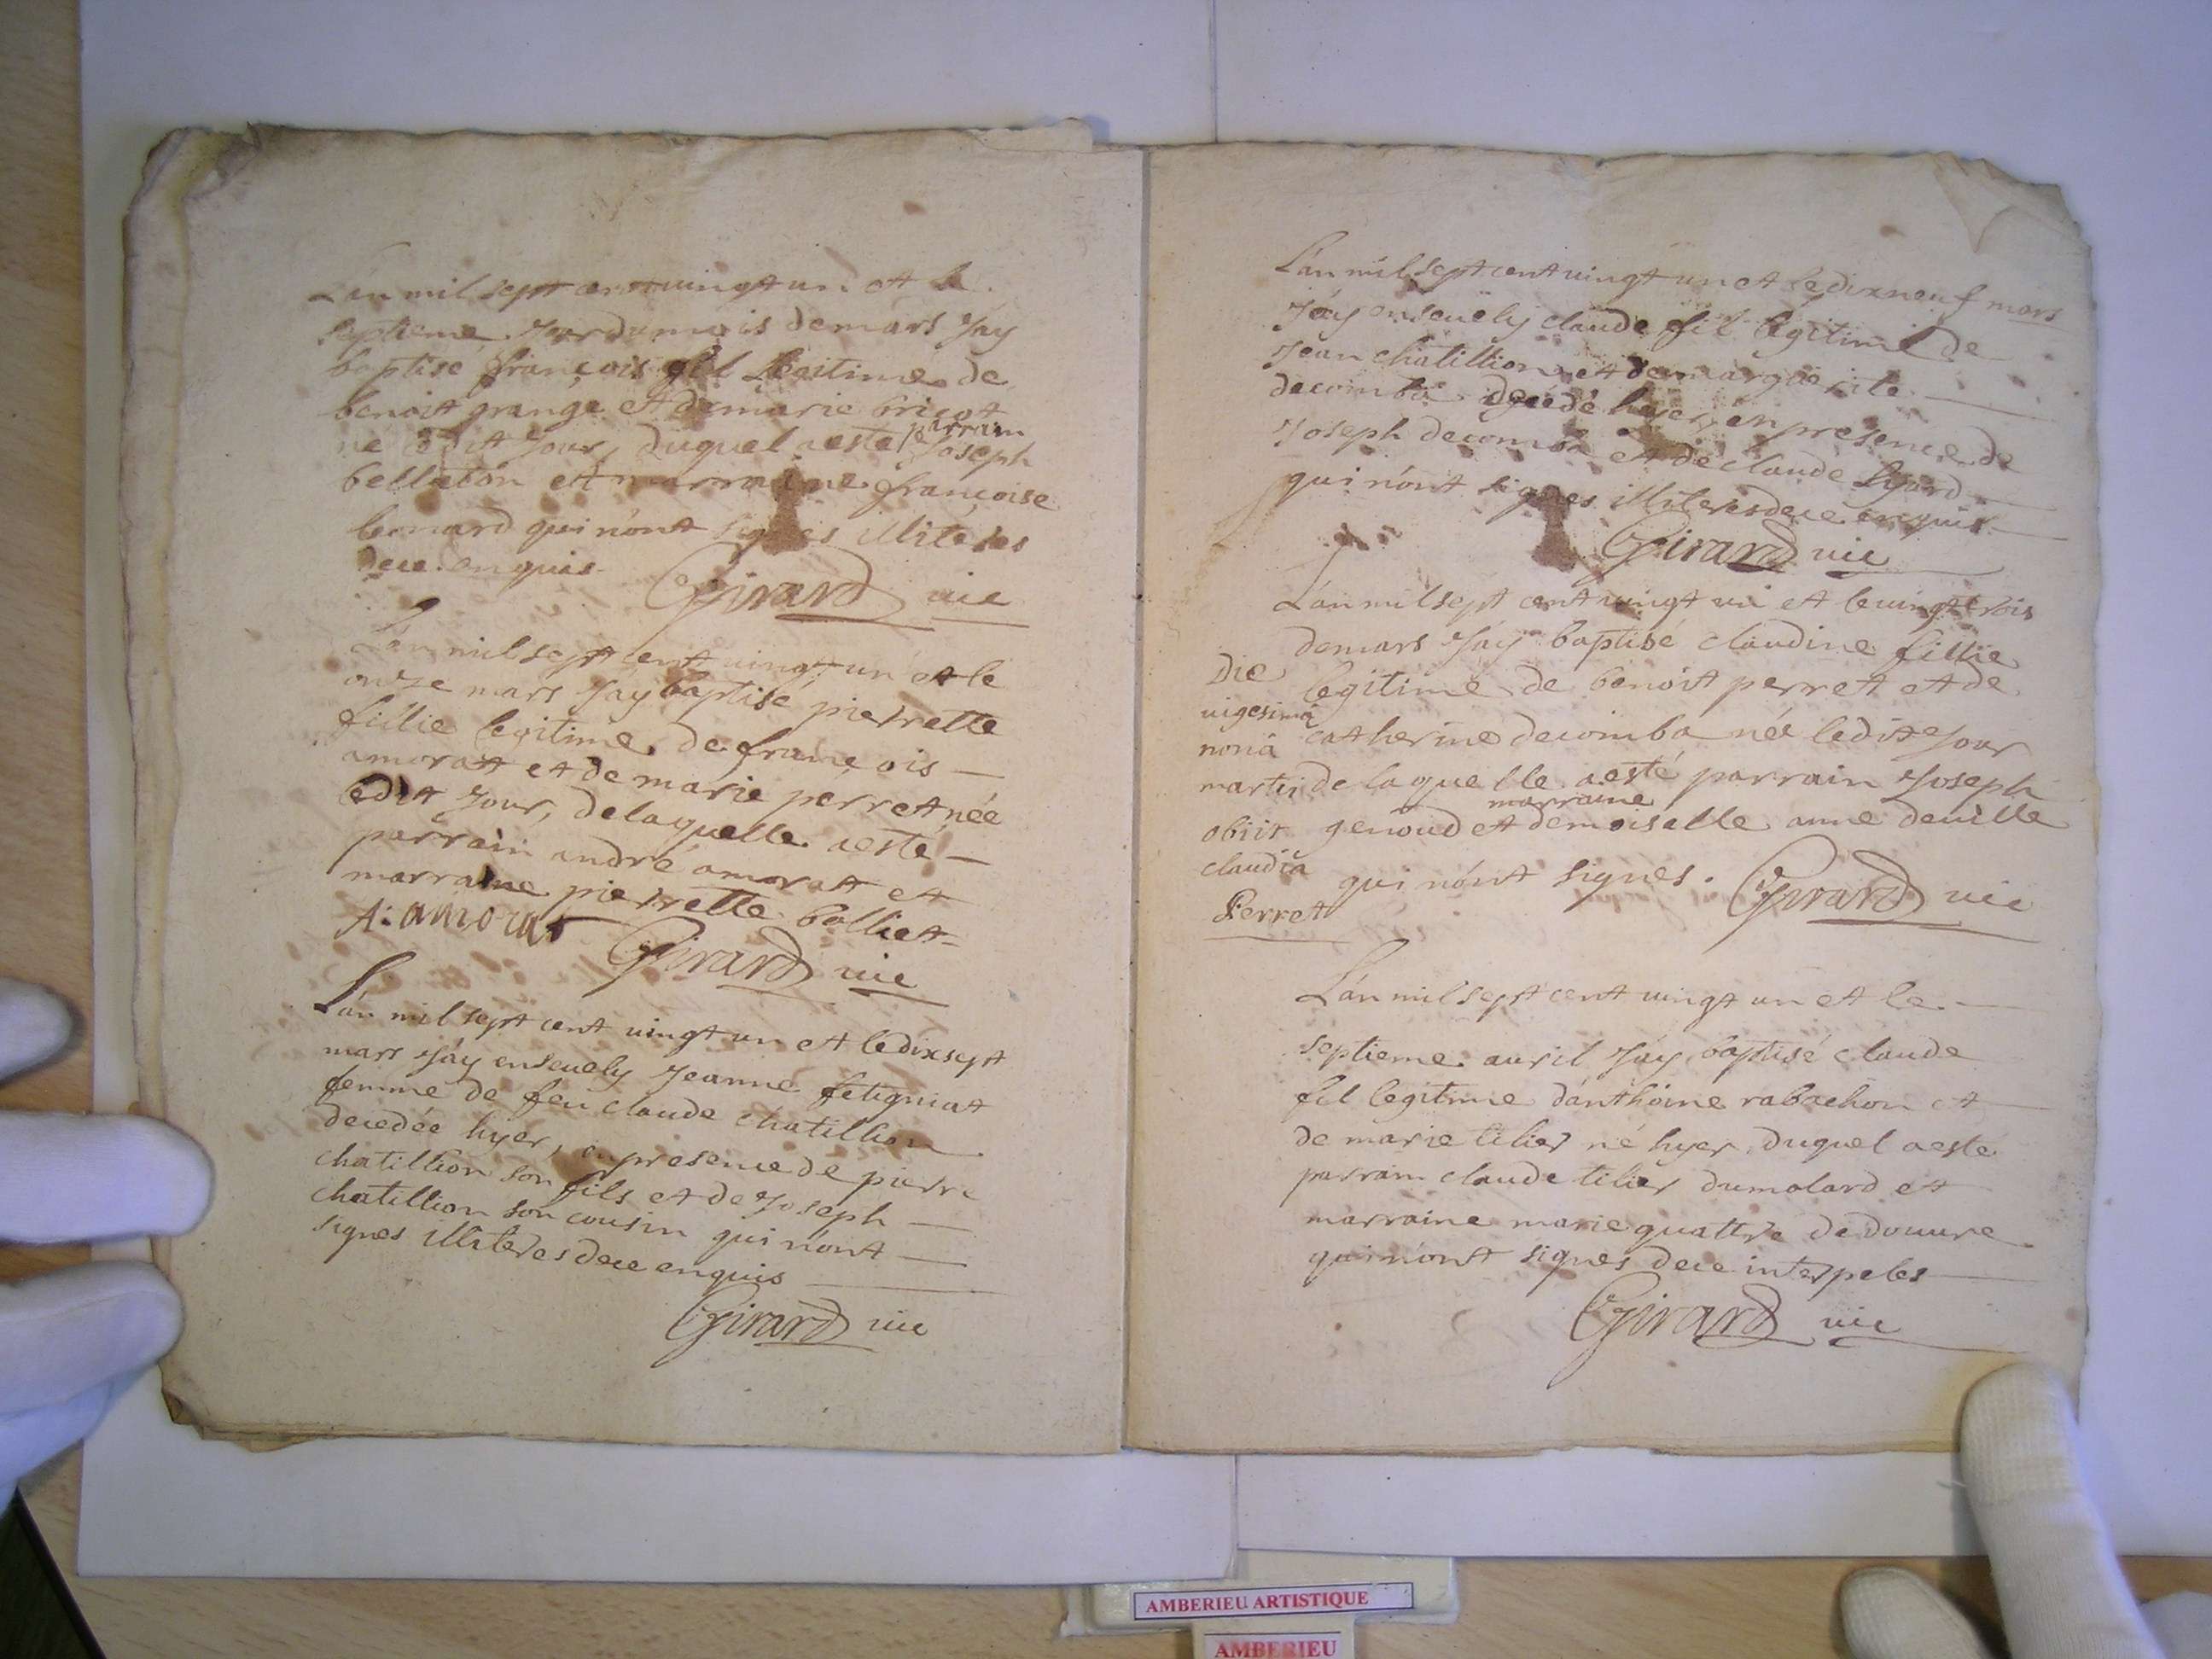 Lán mil sept cent vingt un et le
septieme Jour du mois de mars Jáy
baptisé françois fil legitime de
benoit grange et de marie bricot
né ledit Jour, duquel a esté parrain Joseph
bellaton et marraine françoise
bernard qui nónt signés illiteres
de ce enquis. Girard vic
Lán mil sept cent vingt un et le
onze mars Jáy baptisé pierrette
fillie legitime de françois —
amorat et de marie perret née
ledit Jour, de laquelle a esté —
parrain andré amorat et
marraine pierrette bolliet
A: amorat Girard vic
Lán mil sept cent vingt un et le dix sept
mars Jáy ensevely Jeanne fetigniat
femme de feu claude chatillion
decedée hyer, en presence de pierre
chatillion son fils et de Joseph —
chatillion son cousin qui nónt —
signes illiteres de ce enquis
Girard vic
Lán mil sept cent vingt un et le dix neuf mars
Jáy ensevely claude fil legitime de
Jean chatillion et de margueritte
decomba decedé hyer, en presence de
Joseph decomba et de claude lyard
qui nónt signes illiteres de ce enquis
Girard vic
Lán mil sept cent vingt un et le vingt trois
de mars Jáy baptisé claudine fillie
legitime de benoit perret et de
catherine decomba née ledit Jour
de laquelle a esté parrain Joseph
genoud et marraine demoiselle anne deville
qui nónt signes. Girard vic
Die
vigesima
nona
martii
obiit
claudia
Perret
Lán mil sept cent vingt un et le —
septieme avril Jáy baptisé claude
fil legitime dánthoine rabuchon et
de marie tilier né hyer, duquel a esté
parrain claude tilier du molard et
marraine marie quattre de douvre
qui nónt signes de ce interpeles
Girard vic
AMBERIEU ARTISTIQUE
AMBERIEU